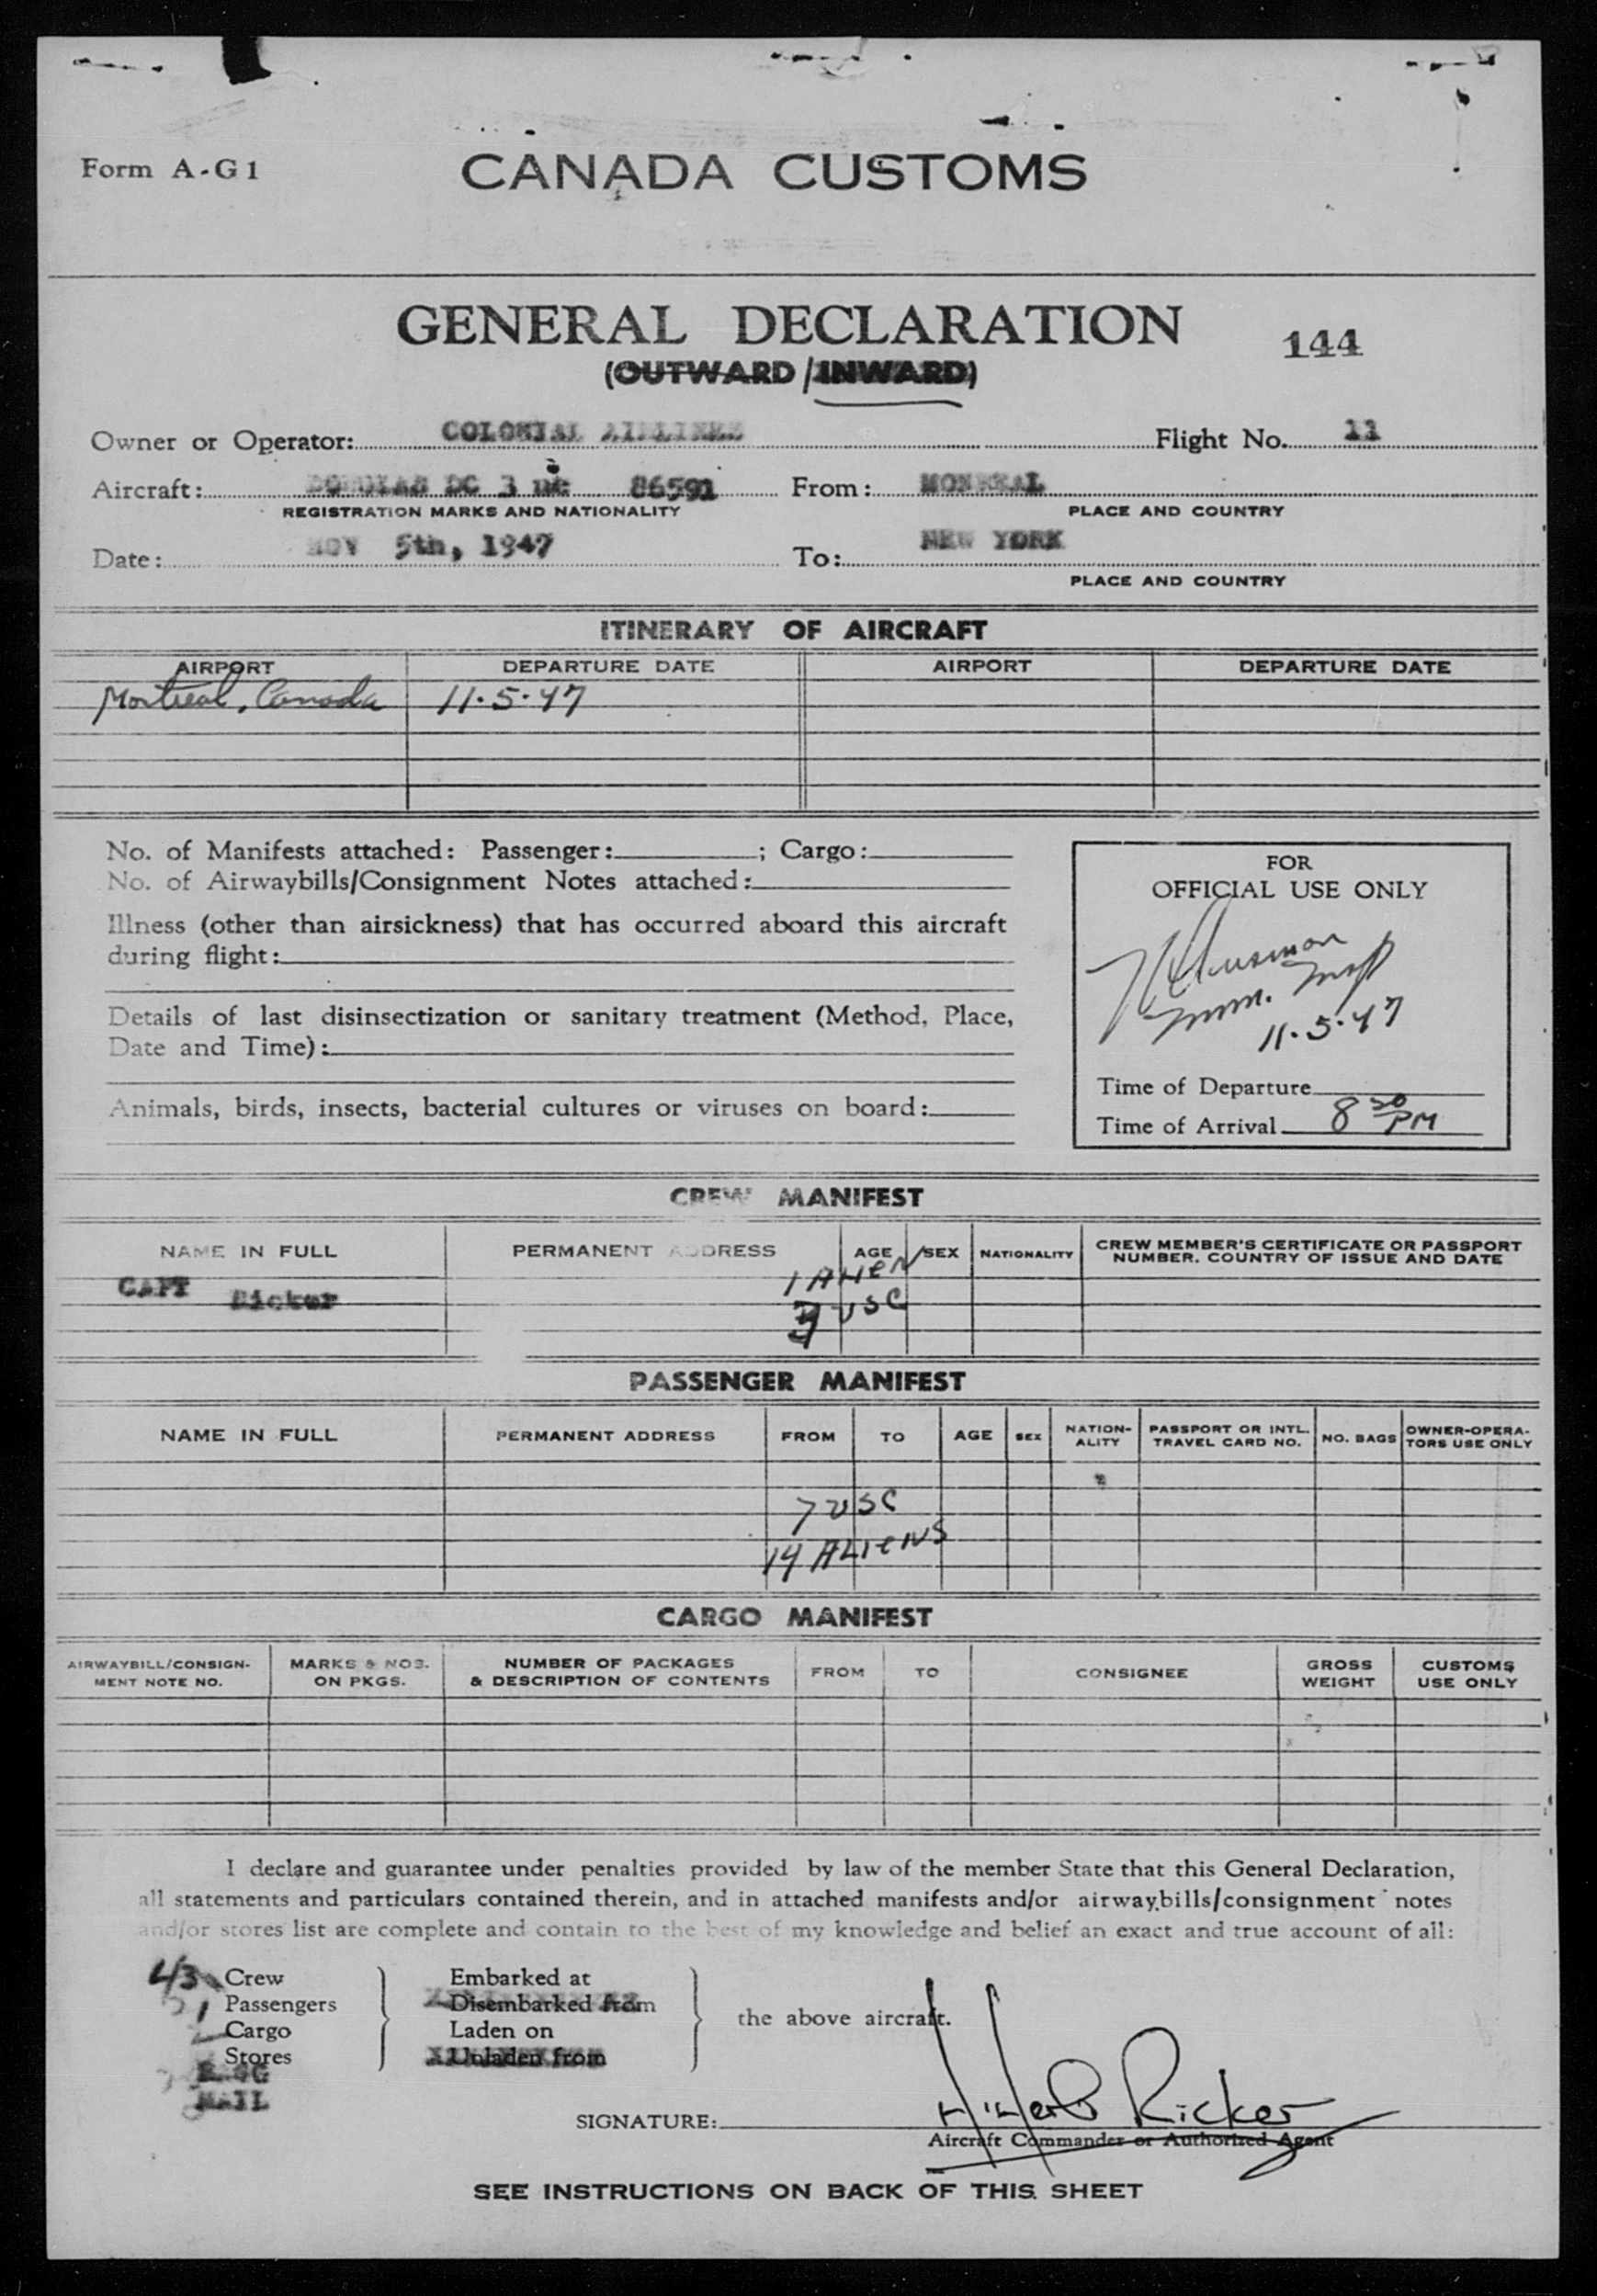 Form A-G1
CANADA CUSTOMS
GENERAL DECLARATION
144
(OUTWARD/INWARD)
Owner or Operator: COLONIAL AIRLINES Flight No. 11
Aircraft: DOUGLAS DC 3 nc 86591 From: MONREAL
REGISTRATION MARKS AND NATIONALITY PLACE AND COUNTRY
Date: NOV 5th, 1947 To: NEW YORK
PLACE AND COUNTRY
ITINERARY OF AIRCRAFT
AIRPORT DEPARTURE DATE AIRPORT DEPARTURE DATE
Montreal, Canada 11.5.47
No. of Manifests attached: Passenger: ; Cargo:
No. of Airwaybills/Consignment Notes attached:
Illness (other than airsickness) that has occurred aboard this aircraft
during flight:
Details of last disinsectization or sanitary treatment (Method, Place,
Date and Time):
Animals, birds, insects, bacterial cultures or viruses on board:
FOR
OFFICIAL USE ONLY
Imm. Insp
11.5.47
Time of Departure
Time of Arrival 8 30 PM
CREW MANIFEST
NAME IN FULL PERMANENT ADDRESS AGE SEX NATIONALITY CREW MEMBER'S CERTIFICATE OR PASSPORT
NUMBER, COUNTRY OF ISSUE AND DATE
1 ALIEN
CAPT Ricker
USC
PASSENGER MANIFEST
NAME IN FULL PERMANENT ADDRESS FROM TO AGE SEX NATION-
ALITY PASSPORT OR INTL.
TRAVEL CARD NO. NO. BAGS OWNER-OPERA-
TORS USE ONLY
7 USC
14 ALIENS
CARGO MANIFEST
AIRWAYBILL/CONSIGN-
MENT NOTE NO. MARKS & NOS.
ON PKGS. NUMBER OF PACKAGES
& DESCRIPTION OF CONTENTS FROM TO CONSIGNEE GROSS
WEIGHT CUSTOMS
USE ONLY
I declare and guarantee under penalties provided by law of the member State that this General Declaration,
all statements and particulars contained therein, and in attached manifests and/or airwaybills/consignment notes
and/or stores list are complete and contain to the best of my knowledge and belief an exact and true account of all:
Crew Embarked at
Passengers Disembarked from
the above aircraft.
Cargo Laden on
Stores Unladen from
MAIL
SIGNATURE: Herb Ricker
Aircraft Commander or Authorized Agent
SEE INSTRUCTIONS ON BACK OF THIS SHEET